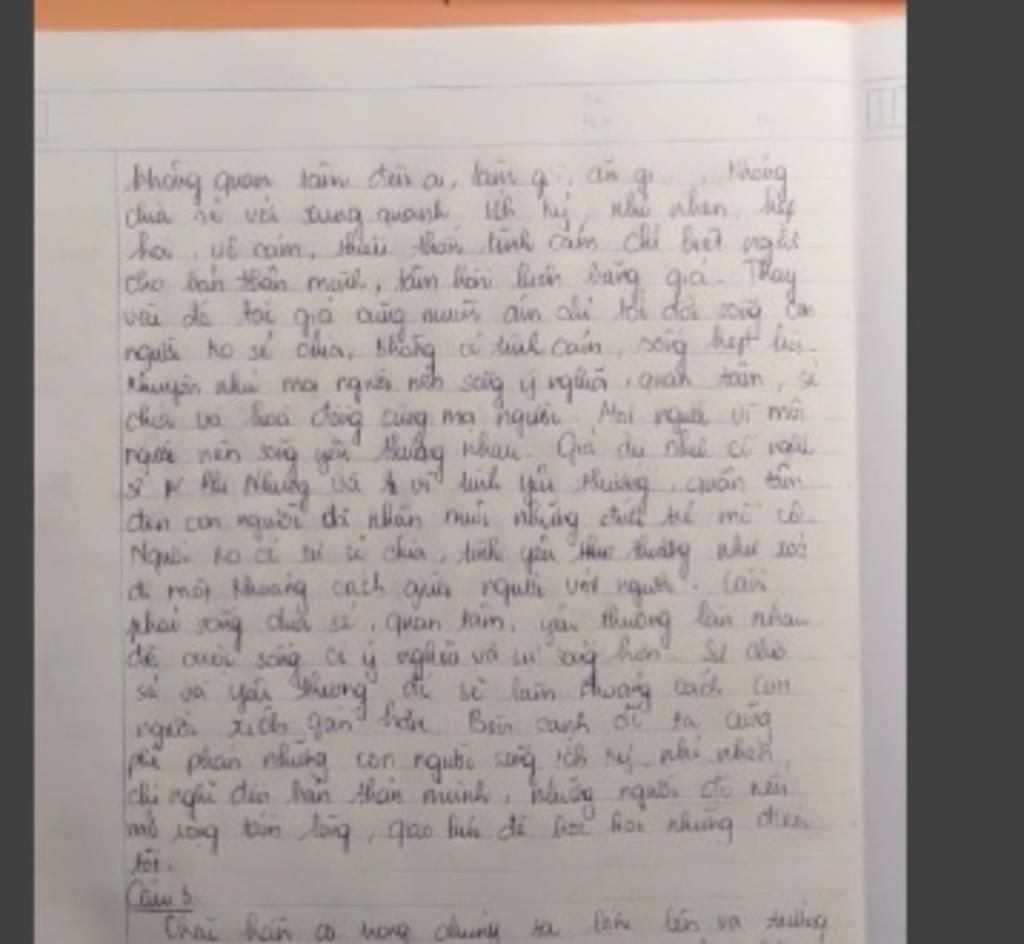 không quan tâm đến ai, làm gì, ăn gì ... Không
chia sẻ với xung quanh, ích kỷ, nhỏ nhen, hẹp
hòi, vô cảm, thiếu thốn tình cảm chỉ biết nghĩ
cho bản thân mình, tâm hồn luôn băng giá. Thay
vào đó tác giả cũng muốn ám chỉ tới đời sống
người ko sẻ chia, không có tình cảm, sống hẹp hòi.
Khuyên nhủ mọi người nên sống ý nghĩa, quan tâm, sẻ
chia và hoà đồng cùng mọi người. Mọi người vì mỗi
người nên sống yêu thương nhau. Giả dụ như có nghệ
sĩ Phi Nhung và vì tình yêu thương, quan tâm
đến con người đã nhận nuôi những đứa trẻ mồ côi.
Người ko có sự sẻ chia, tình yêu thương như xoá
đi một khoảng cách giữa người với người. Cần
phải sống chia sẻ, quan tâm, yêu thương lẫn nhau
để cuộc sống có ý nghĩa và hơn. Sự chia
sẻ và yêu thương đó sẽ làm khoảng cách con
người xích gần hơn. Bên cạnh đó ta cũng
phê phán những con người sống ích kỷ, nhỏ nhen,
chỉ nghĩ đến bản thân mình, những người đó nên
mở rộng tấm lòng, giao lưu để học hỏi những điều
tốt.
Câu 5
Chắc hẳn ai trong chúng ta lớn lên và trưởng